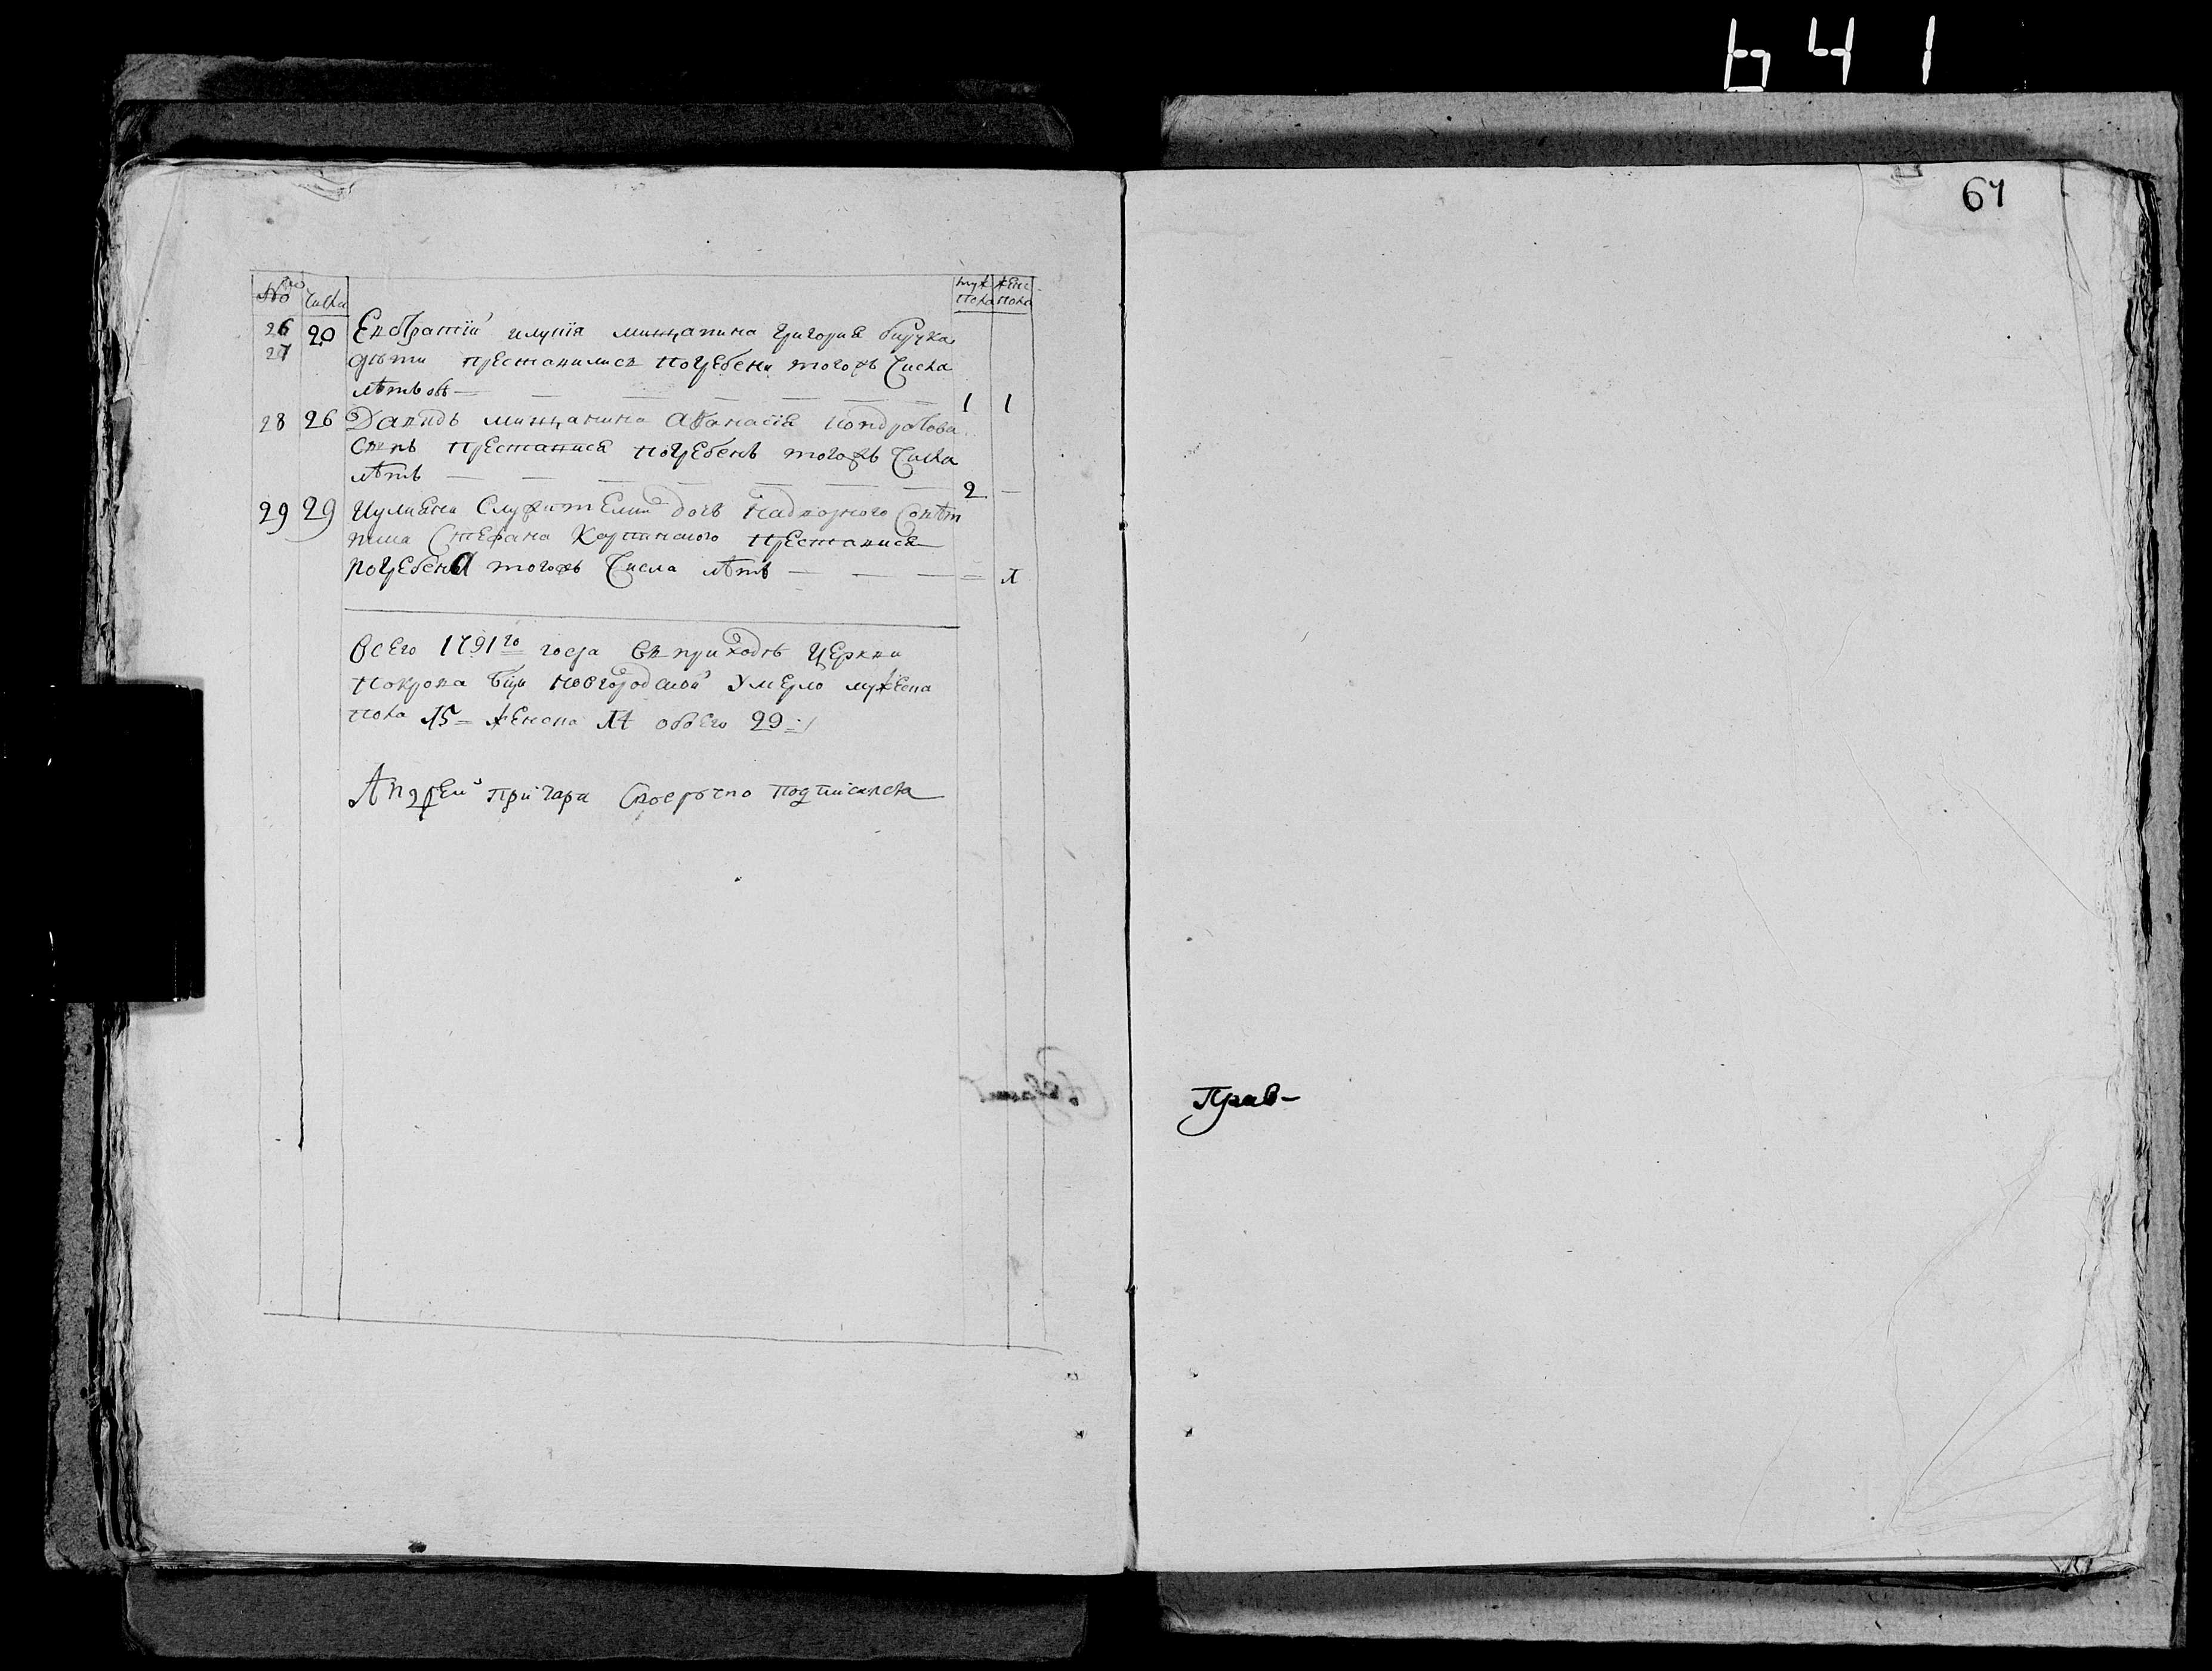 641
67
№ Числа муж пола жен пола
26 20 Евстратїй мищанина Григория
27 дѣти преставились погребени того жъ Числа
лѣтъ обѣ — 1 1
28 26 Давидъ мищанина Афанасія Кондратова
синъ преставися погребенъ того жъ Числа
лѣтъ — 2 —
29 29 Иулиана Служителий дочь надворного Совѣт
ника Стефана преставися
погребена того жъ Числа лѣтъ — 1
Всего 1791го года въ приходѣ Церкви
Покрова Бци Новгородской умерло мужеска
пола 15 — женска 14 обоего 29
Андрей своеручно подписался
Прав-